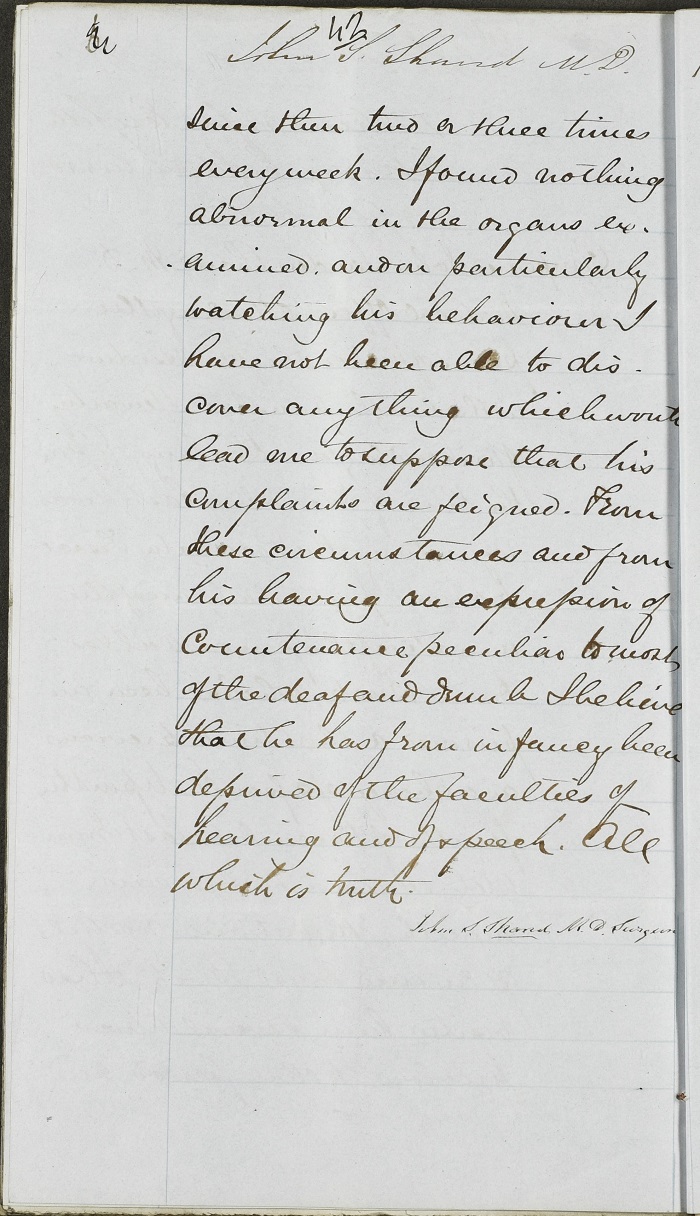 John S. Shand M.D.
since then two or three times
every week. I found nothing
abnormal in the organs ex-
amined. and on particularly
watching his behaviour I
have not been able to dis-
cover anything which would
lead me to suppose that his
complaints are feigned. From
these circumstances and from
his having an expression of
countenance peculiar to most
of the deaf and dumb I believe
that he has from infancy been
deprived of the faculties of
hearing and of speech. All
which is truth.
John S. Shand M.D. Surgeon